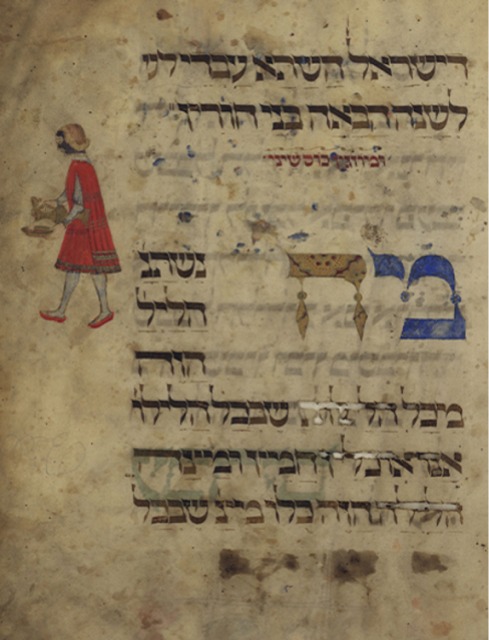 דישראל השתא עבדי
לשנה הבאה בני חורין
ומוזגין כוס שיני
מה נשתנ
הליל
הזה
מכל הלילות שבכל הלילו
אנו אוכלין חמץ ומצה ה
הלילה הזה כלו מצה שבכל